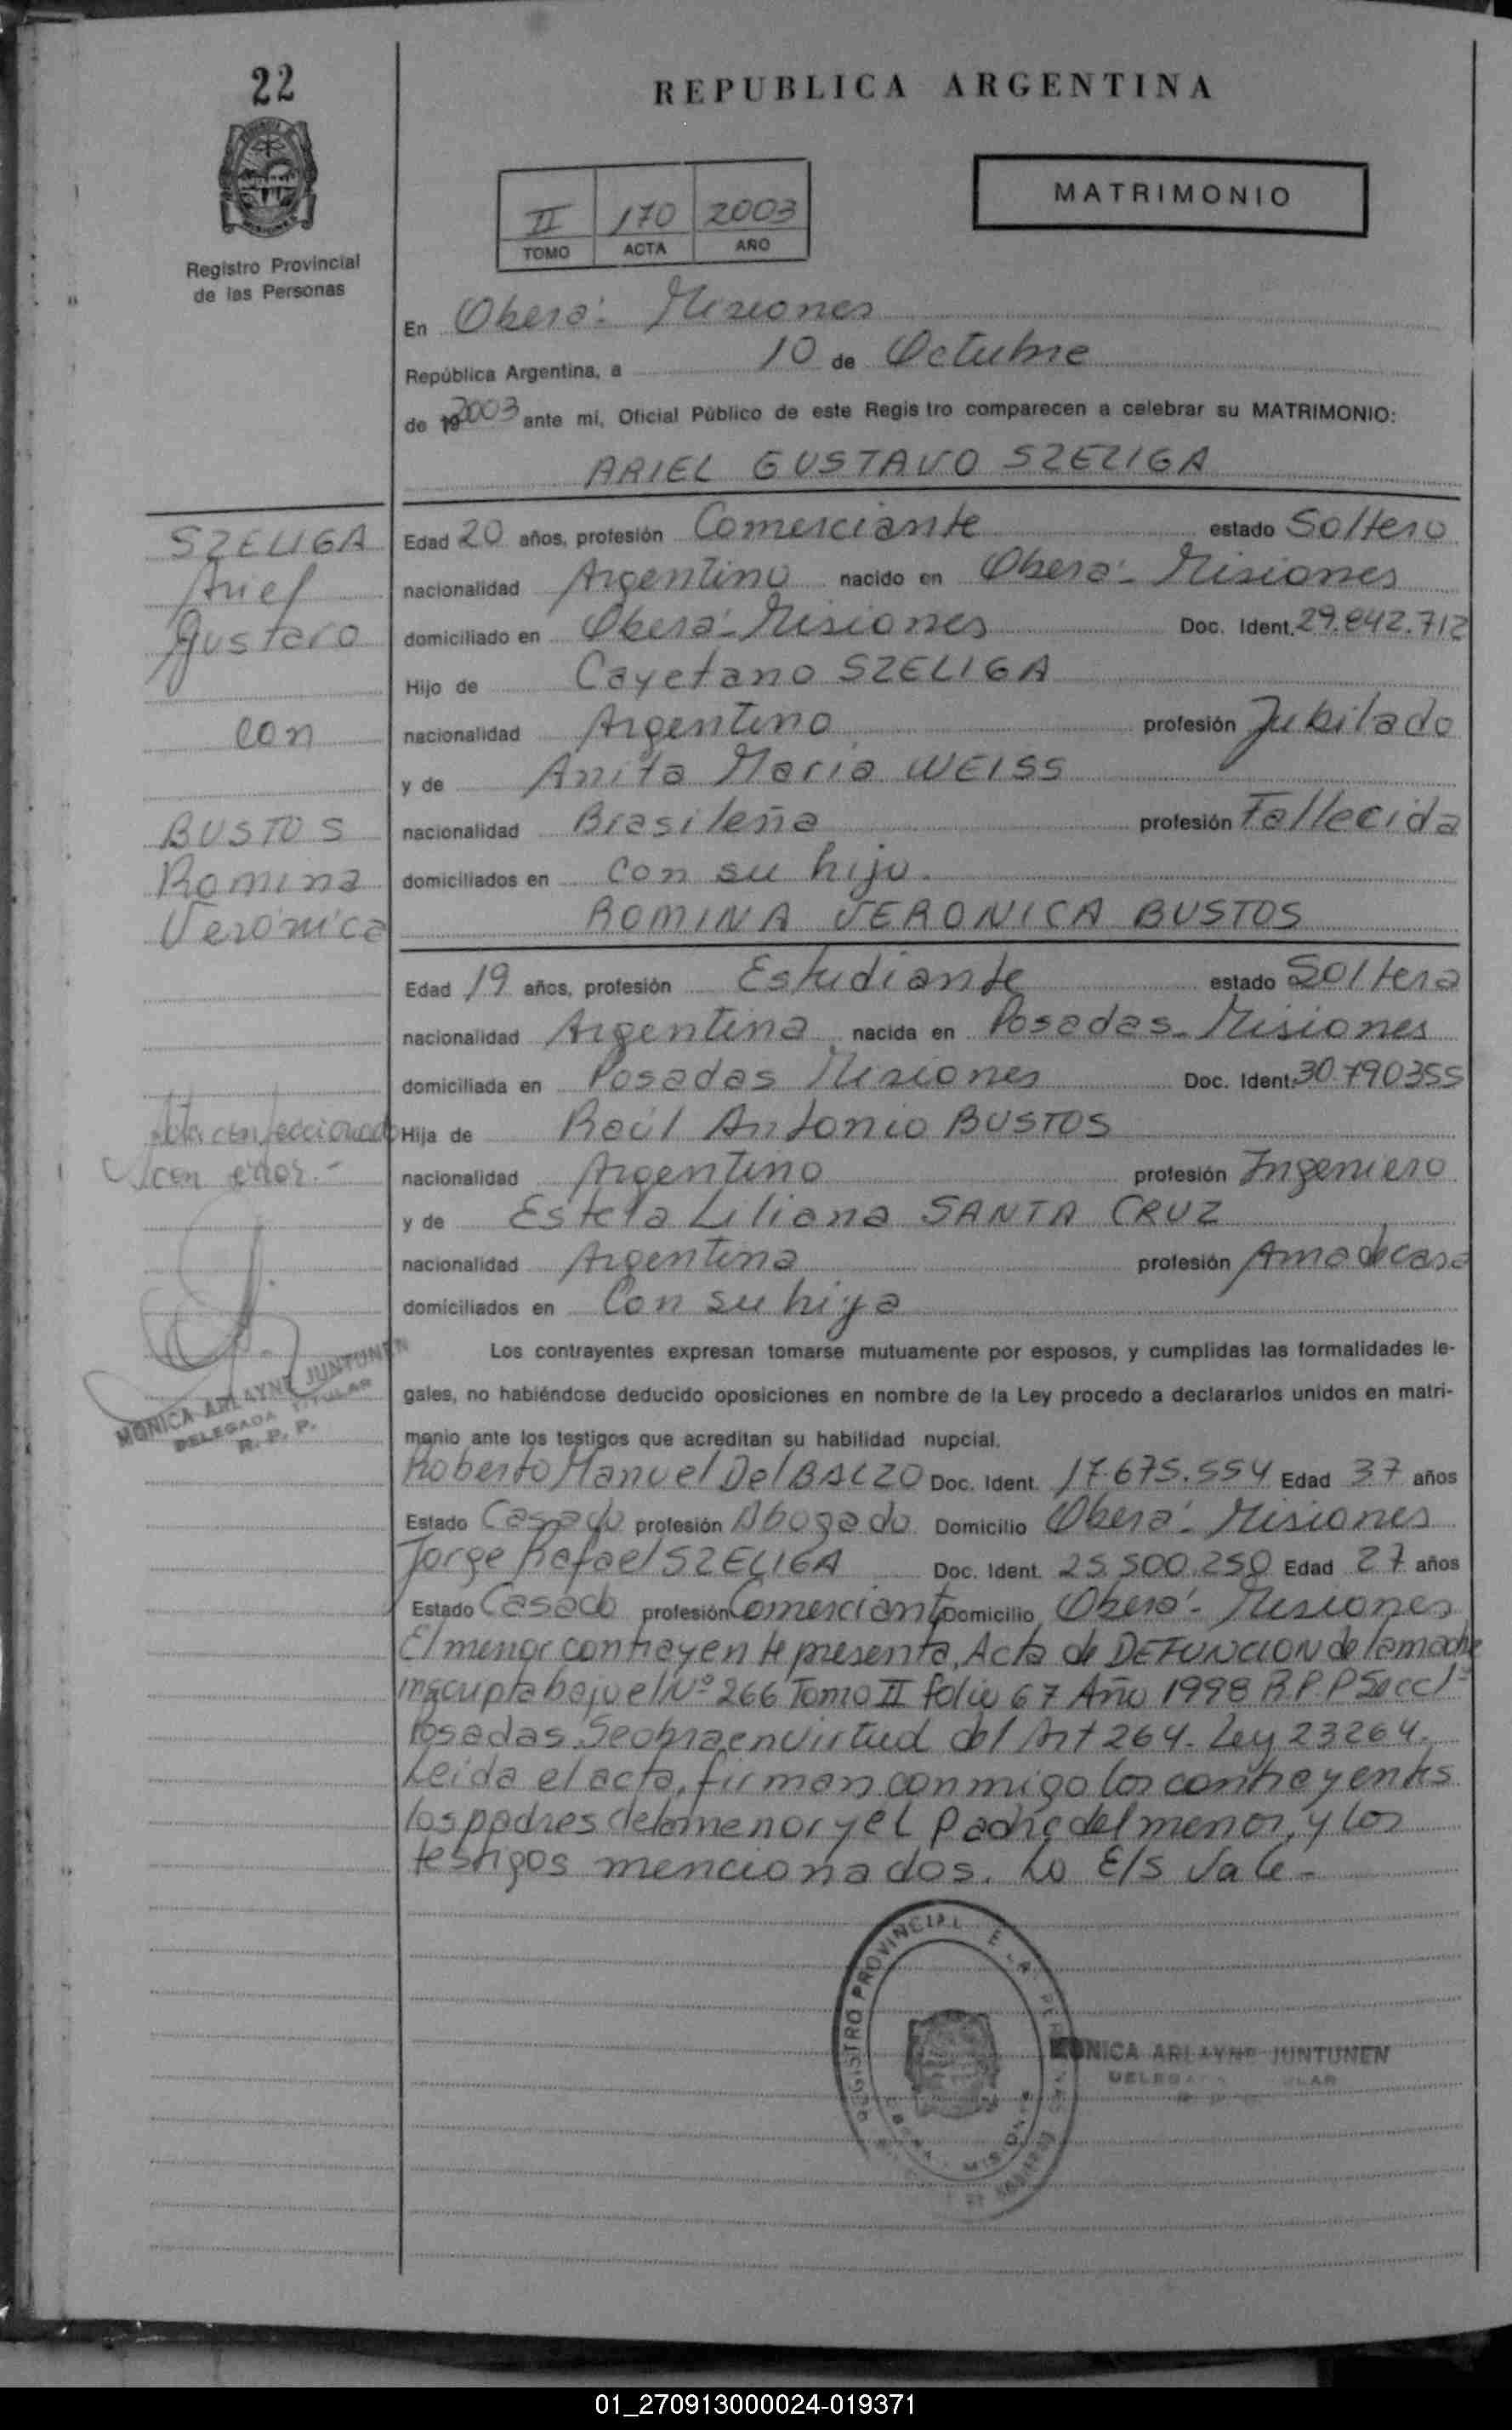 22
REPUBLICA ARGENTINA
Registro Provincial
de las Personas
II 170 2003
TOMO ACTA AÑO
MATRIMONIO
En Oberá - Misiones
República Argentina, a 10 de Octubre
de 192003 ante mi, Oficial Público de este Regis tro comparecen a celebrar su MATRIMONIO:
ARIEL GUSTAVO SZELIGA
SZELIGA
Ariel
Gustavo
con
BUSTOS
Romina
Verónica
Edad 20 años, profesión Comerciante estado Soltero
nacionalidad Argentino nacido en Oberá - Misiones
domiciliado en Oberá - Misiones Doc. Ident. 29.842.712
Hijo de Cayetano SZELIGA
nacionalidad Argentino profesión Jubilado
y de Anita Maria WEISS
nacionalidad Brasileña profesión Fallecida
domiciliados en con su hijo.
ROMINA VERONICA BUSTOS
Edad 19 años, profesión Estudiante estado Soltera
nacionalidad Argentina nacida en Posadas - Misiones
domiciliada en Posadas Misiones Doc. Ident. 30.790355
Hija de Raúl Antonio BUSTOS
nacionalidad Argentino profesión Ingeniero
y de Estela Liliana SANTA CRUZ
nacionalidad Argentina profesión Ama de casa
domiciliados en Con su hija
confeccionado
con error. -
MONICA ARLAYNE JUNTUNEN
DELEGADA TITULAR
R. P. P.
Los contrayentes expresan tomarse mutuamente por esposos, y cumplidas las formalidades le-
gales, no habiéndose deducido oposiciones en nombre de la Ley procedo a declararlos unidos en matri-
monio ante los testigos que acreditan su habilidad nupcial.
Roberto Manuel Del BALZO Doc. Ident. 17.675.554 Edad 37 años
Estado Casado profesión Abogado Domicilio Oberá - Misiones
Jorge Rafael SZELIGA Doc. Ident. 25.500.250 Edad 27 años
Estado Casado profesión Comerciante Domicilio Oberá - Misiones
El menor contrayente presenta, Acta de DEFUNCION de la madre
inscripta bajo el Nº 266 Tomo II folio 67 Año 1998 R.P.P Secc 1ª
Posadas. Se obra en virtud del Art 264. Ley 23264.
Leida el acta, firman conmigo los contrayentes
los padres de la menor y el padre del menor, y los
testigos mencionados. Lo E/S Vale -
REGISTRO PROVINCIAL
MISIONES
MONICA ARLAYNE JUNTUNEN
01_270913000024-019371